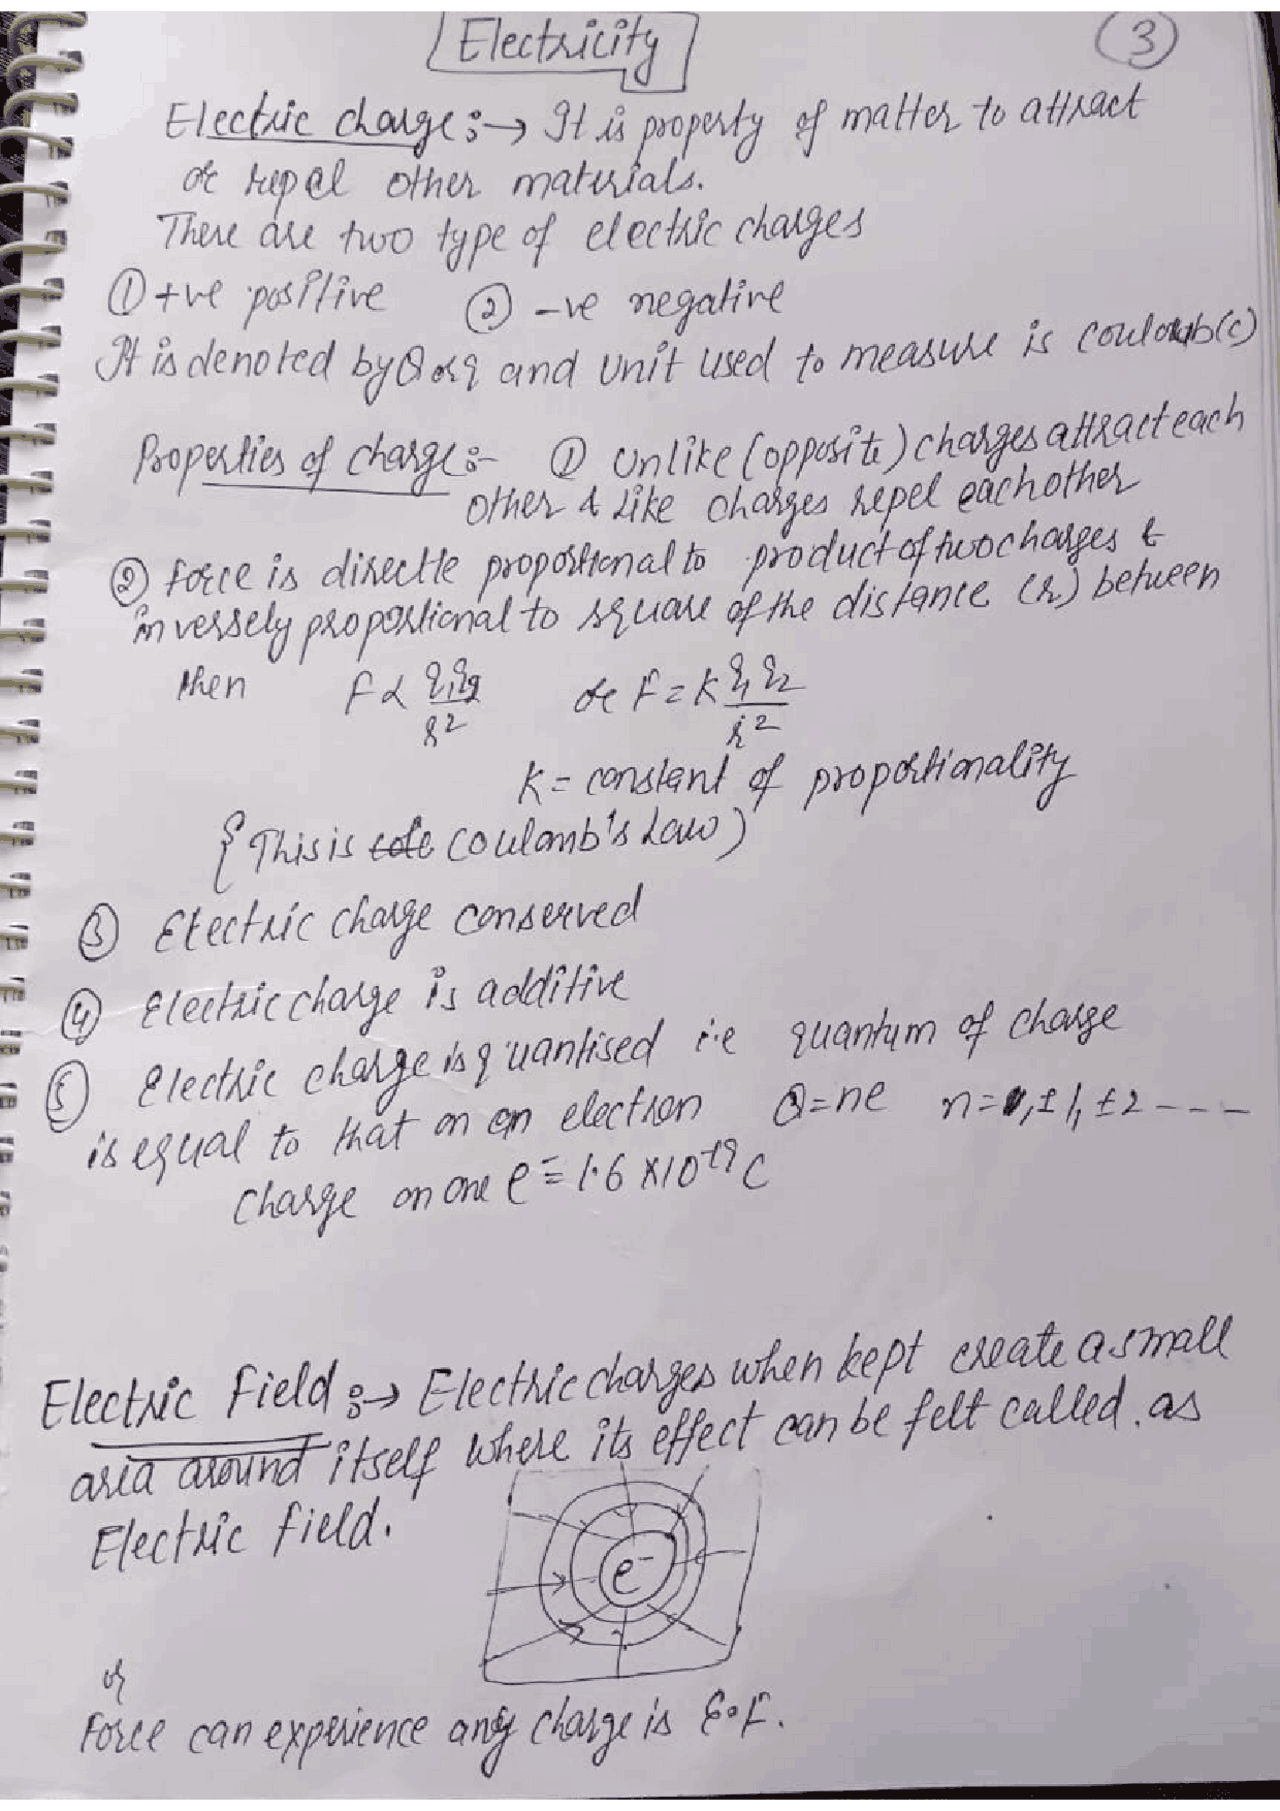 Electricity
3
Electric charge :→ It is property of matter to attract
or repel other materials.
There are two type of electric charges
① +ve positive ② -ve negative
It is denoted by Q or q and unit used to measure is coulomb(c)
Properties of charge :- ① Unlike (opposite) charges attract each
other & Like charges repel each other
② force is directle proportional to product of two charges &
inversely proportional to square of the distance (r) between
then F ∝ q1q2/r² or F = K q1 q2/r²
K = constant of proportionality
{This is Coulomb's Law)
③ Electric charge conserved
④ Electric charge is additive
⑤ Electric charge is quantised i.e quantum of charge
is equal to that on an electron Q=ne n=0,±1,±2 - - -
Charge on one e⁻ = 1.6 x10⁻¹⁹ C
Electric Field :→ Electric charges when kept create a small
area around itself where its effect can be felt called as
Electric field.
e⁻
or
Force can experience any charge is E.F.